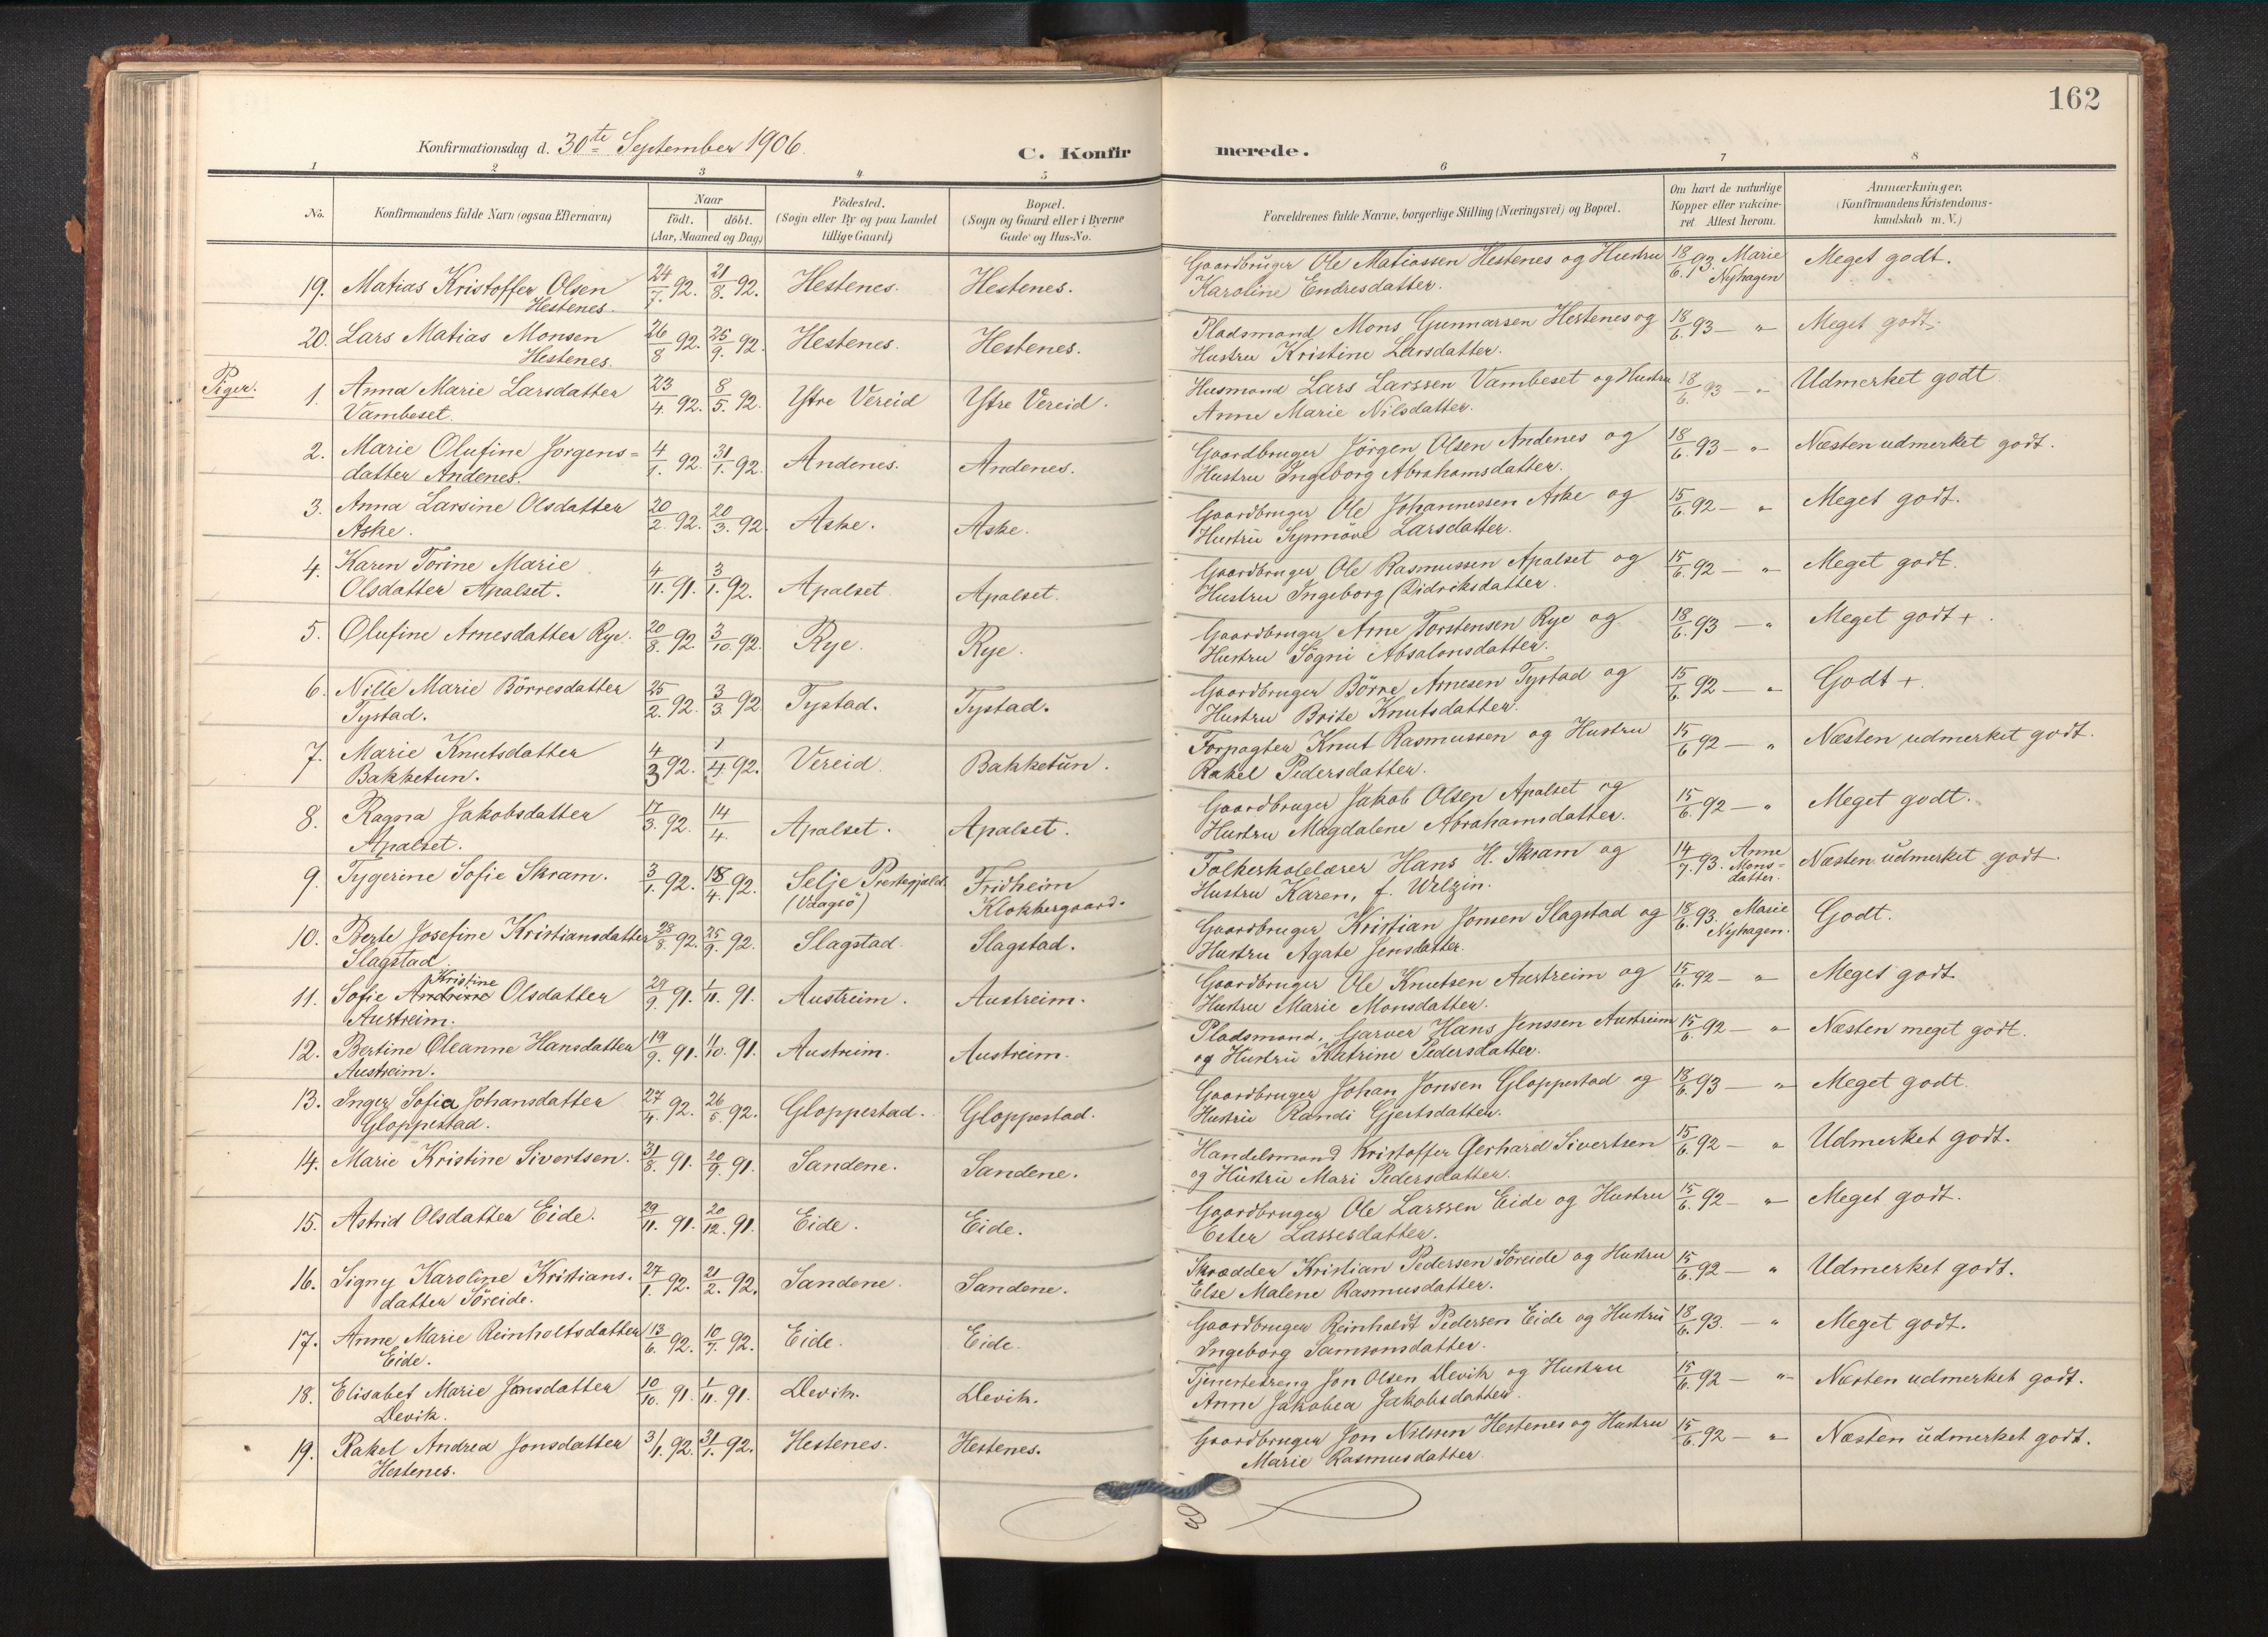 162
Konfirmationsdag d. 30te September 1906.
C. Konfirmerede.
1 2 3 4 5 6 7 8
No.
Konfirmandens fulde Navn (ogsaa Efternavn)
Naar
födt. döbt.
(Aar, Maaned og Dag)
Födested.
(Sogn eller By og paa Landet
tillige Gaard)
Bopæl.
(Sogn og Gaard eller i Byerne
Gade og Hus-No.
Forældrenes fulde Navne, borgerlige Stilling (Næringsvei) og Bopæl.
Om havt de naturlige
Kopper eller vakcine-
ret Attest herom.
Anmærkninger.
(Konfirmandens Kristendoms-
kundskab m. V.)
19. Matias Kristoffer Olsen 24/7. 92. 21/8. 92. Hestenes. Hestenes. Gaardbruger Ole Matiassen Hestenes og Hustru 18/6. 93. Marie Meget godt.
Hestenes. Karoline Endresdatter. Nyhagen
20. Lars Matias Monsen 26/8 92. 25/9. 92. Hestenes. Hestenes. Pladsmand Mons Gunnarsen Hestenes og 18/6. 93 — " Meget godt.
Hestenes. Hustru Kristine Larsdatter.
Piger.
1. Anna Marie Larsdatter 23/4 92. 8/5. 92. Ytre Vereid Ytre Vereid. Husmand Lars Larssen Vambeset og Hustru 18/6. 93 — " Udmerket godt
Vambeset. Anne Marie Nilsdatter.
2. Marie Olufine Jørgens= 4/1. 92. 31/1. 92. Andenes. Andenes. Gaardbruger Jörgen Olsen Andenes og 18/6. 93 — " Næsten udmerket godt.
datter Andenes. Hustru Ingeborg Abrahamsdatter.
3. Anna Larsine Olsdatter 20/2. 92. 20/3. 92. Aske. Aske. Gaardbruger Ole Johannessen Aske og 15/6. 92 — " Meget godt.
Aske. Hustru Synnöve Larsdatter.
4. Karen Torine Marie 4/11. 91. 3/1. 92. Apalset Apalset. Gaardbruger Ole Rasmussen Apalset og 15/6. 92 — " Meget godt.
Olsdatter Apalset. Hustru Ingeborg Didriksdatter.
5. Olufine Arnesdatter Rye. 20/8. 92. 3/10. 92. Rye. Rye. Gaardbruger Arne Torstensen Rye og 18/6. 93 — " Meget godt +.
Hustru Sögni Absalonsdatter.
6. Nille Marie Börresdatter 25/2. 92. 3/3. 92 Tystad. Tystad. Gaardbruger Börre Arnesen Tystad og 15/6. 92 — " Godt +.
Tystad. Hustru Brite Knutsdatter.
7. Marie Knutsdatter 4/3 92. 1/4 92. Vereid. Bakketun. Forpagter Knut Rasmussen og Hustru 15/6 92 — " Næsten udmerket godt.
Bakketun. Rakel Pedersdatter.
8. Ragna Jakobsdatter 17/3. 92. 14/4. Apalset. Apalset. Gaardbruger Jakob Olsen Apalset og 15/6. 92 — " Meget godt.
Apalset. Hustru Magdalene Abrahamsdatter.
9. Tygerine Sofie Skram. 3/1. 92. 18/4. 92. Selje Prestegjæld. Fridheim Folkeskolelærer Hans H. Skram og 14/7. 93. Anne Næsten udmerket godt.
(Vaagsö) Klokkergaard. Hustru Karen, f. Welzin. Mons=
datter.
10. Berte Josefine Kristiansdatter 28/8. 92. 25/9. 92. Slagstad. Slagstad. Gaardbruger Kristian Jonsen Slagstad og 18/6. 93. Marie Godt.
Slagstad. Hustru Agate Jensdatter. Nyhagen.
Kristine
11. Sofie Andrine Olsdatter 29/9. 91. 1/11. 91. Austreim. Austreim. Gaardbruger Ole Knutsen Austreim og 15/6. 92 — " Meget godt.
Austreim. Hustru Marie Monsdatter.
12. Bertine Oleanne Hansdatter 19/9. 91. 11/10. 91. Austreim. Austreim. Pladsmand, Garver Hans Jenssen Austreim 15/6. 92 — " Næsten meget godt.
Austreim. og Hustru Katrine Pedersdatter.
13. Inger Sofia Johansdatter 27/4. 92. 26/5. 92. Gloppestad. Gloppestad. Gaardbruger Johan Jonsen Gloppestad og 18/6. 93 — " Meget godt.
Gloppestad. Hustru Randi Gjertsdatter.
14. Marie Kristine Sivertsen. 31/8. 91. 20/9. 91. Sandene. Sandene. Handelsmand Kristoffer Gerhard Sivertsen 15/6. 92 — " Udmerket godt.
og Hustru Mari Pedersdatter.
15. Astrid Olsdatter Eide. 29/11. 91. 20/12. 91. Eide. Eide. Gaardbruger Ole Larssen Eide og Hustru 15/6. 92 — " Meget godt.
Ester Lassesdatter.
16. Signy Karoline Kristians- 27/1. 92. 21/2. 92. Sandene. Sandene. Skrædder Kristian Pedersen Söreide og Hustru 15/6. 92 — " Udmerket godt.
datter Söreide. Else Malene Rasmusdatter.
17. Anne Marie Reinholtsdatter 13/6. 92. 10/7. 92. Eide. Eide. Gaardbruger Reinholdt Pedersen Eide og Hustru 18/6. 93. — " Meget godt.
Eide. Ingeborg Samsonsdatter.
18. Elisabet Marie Jonsdatter 10/10. 91. 1/11. 91. Devik. Devik. Tjenestedreng Jon Olsen Devik og Hustru 15/6. 92 — " Næsten udmerket godt.
Devik. Anne Jakobea Jakobsdatter.
19. Rakel Andrea Jonsdatter 3/1. 92. 31/1. 92. Hestenes. Hestenes. Gaardbruger Jon Nilssen Hestenes og Hustru 15/6. 92 — " Næsten udmerket godt.
Hestenes. Marie Rasmusdatter